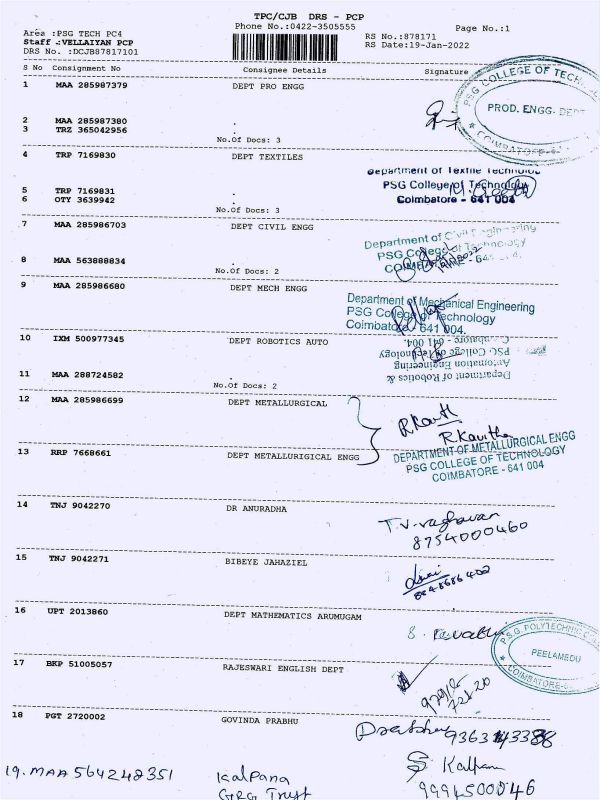 TPC/CJB DRS - PCP
Phone No.:0422-3505555
Page No.:1
Area :PSG TECH PC4
RS No.:878171
Staff :VELLAIYAN PCP
RS Date:19-Jan-2022
DRS No. :DCJB87817101
S No Consignment No Consignee Details Signature
1 MAA 285987379 DEPT PRO ENGG
PSG COLLEGE OF TECH
PROD. ENGG. DEPT
COIMBATORE-641
2 MAA 285987380 .
3 TRZ 365042956 .
No.Of Docs: 3
4 TRP 7169830 DEPT TEXTILES
Department of Textile Technology
PSG College of Technology
Coimbatore - 641 004
5 TRP 7169831 .
6 OTY 3639942 .
No.Of Docs: 3
7 MAA 285986703 DEPT CIVIL ENGG
Department of Civil Engineering
PSG College of Technology
8 MAA 563888834 .
No.Of Docs: 2
9 MAA 285986680 DEPT MECH ENGG
Department of Mechanical Engineering
PSG College of Technology
Coimbatore - 641 004.
10 IXM 500977345 DEPT ROBOTICS AUTO
Department of Robotics &
Automation Engineering
PSG College of Technology
Coimbatore - 641 004.
11 MAA 288724582 .
No.Of Docs: 2
12 MAA 285986699 DEPT METALLURGICAL
R.Kavitha
13 RRP 7668661 DEPT METALLURIGICAL ENGG
DEPARTMENT OF METALLURGICAL ENGG
PSG COLLEGE OF TECHNOLOGY
COIMBATORE - 641 004
14 TNJ 9042270 DR ANURADHA
T.V.raghavan
8754000460
15 TNJ 9042271 BIBEYE JAHAZIEL
16 UPT 2013860 DEPT MATHEMATICS ARUMUGAM
P.S.G. POLYTECHNIC
PEELAMEDU
COIMBATORE
17 BKP 51005057 RAJESWARI ENGLISH DEPT
18 PGT 2720002 GOVINDA PRABHU
19. MAA 564248351 Kalpana
GRG Trust
S Kalpana